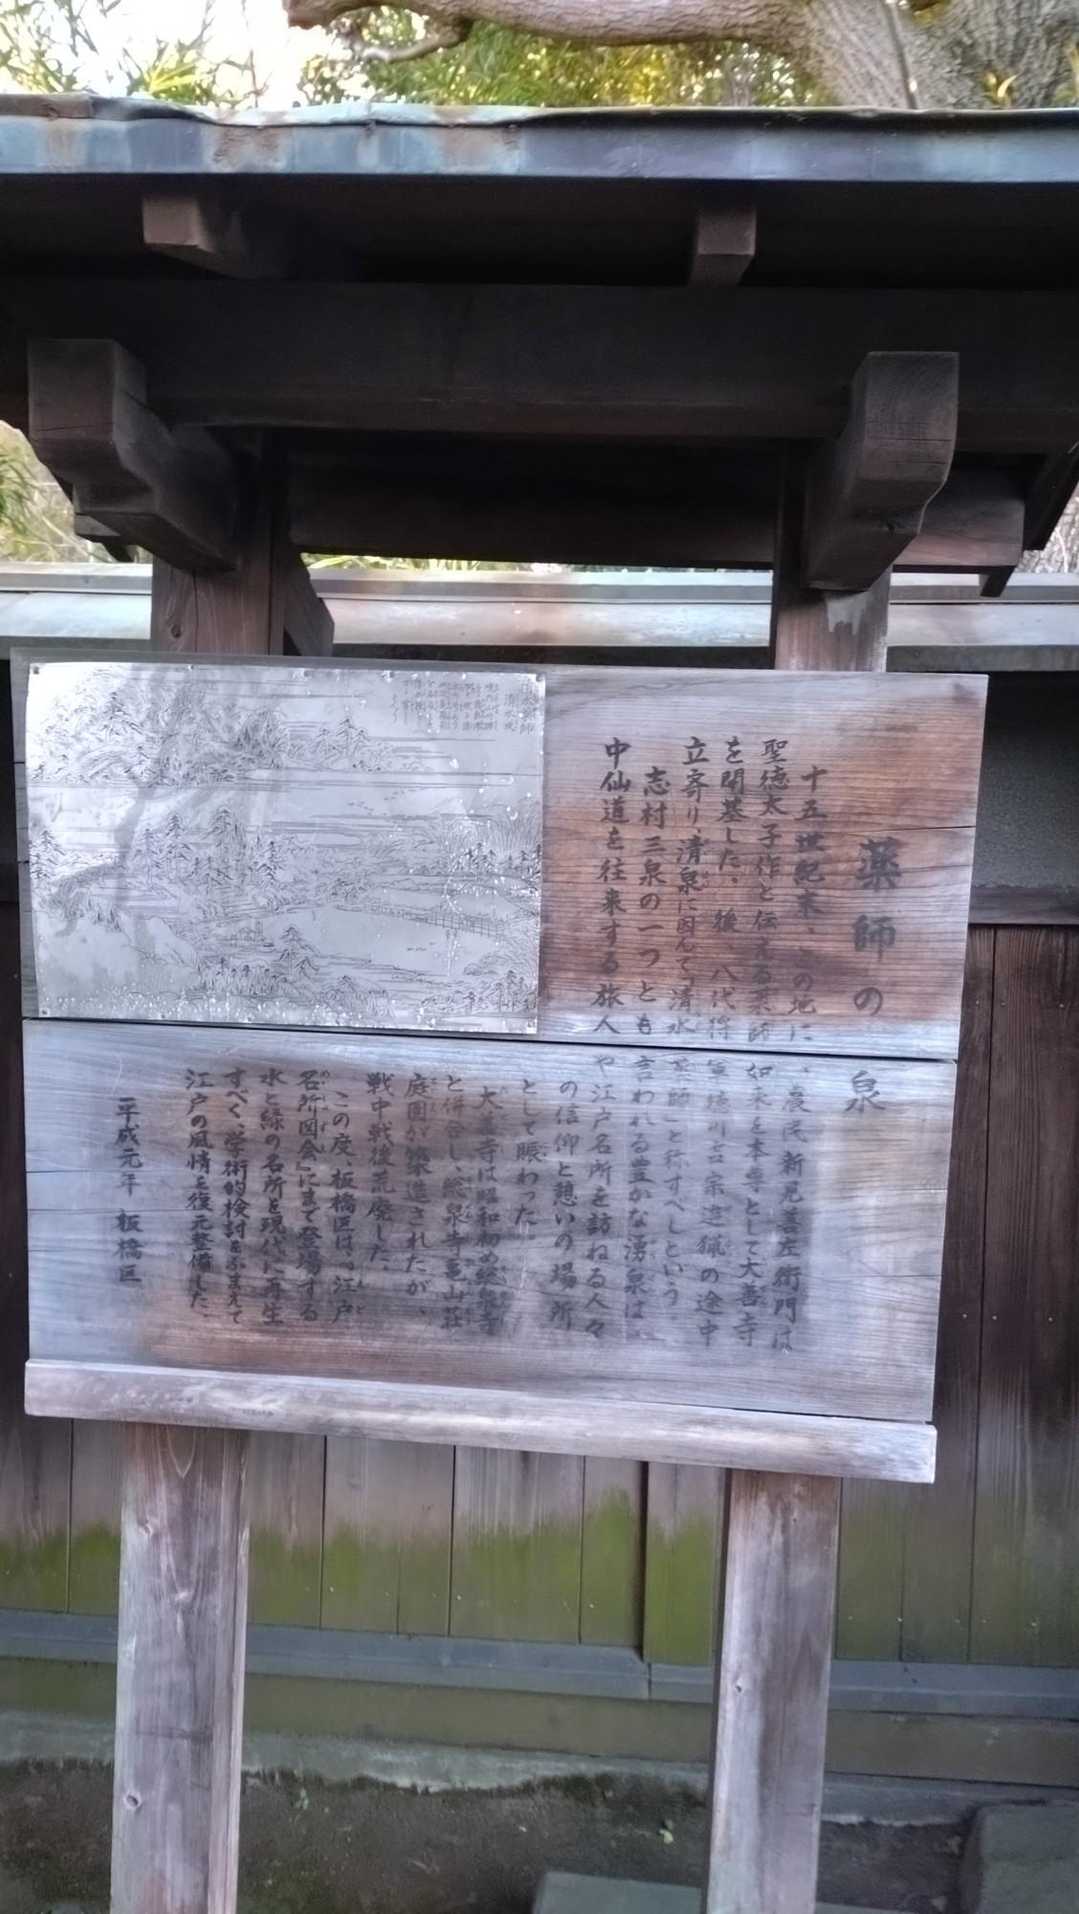 薬師の泉
十五世紀末、この地に、農民新見善左衛門は
聖徳太子作と伝える薬師如来を本尊として大善寺
を開基した。後、八代将軍徳川吉宗遊猟の途中
立寄り、清泉に因んで「清水薬師」と称すべしという。
志村三泉の一つとも言われる豊かな湧泉は、
中仙道を往来する旅人や江戸名所を訪ねる人々
の信仰と憩いの場所
として賑わった。
大善寺は昭和初め総泉寺
と併合し、総泉寺亀山荘
庭園が築造されたが、
戦中戦後荒廃した。
この度、板橋区は、『江戸
名所図会』にまで登場する
水と緑の名所を現代に再生
すべく、学術的検討をふまえて
江戸の風情を復元整備した。
平成元年 板橋区